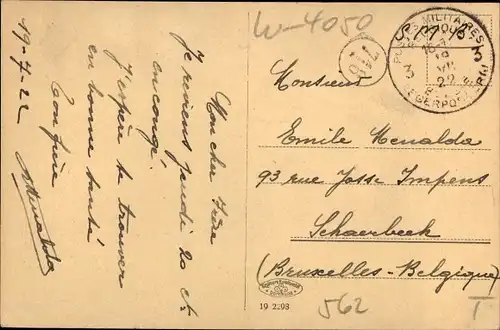 W-4050
POSTES MILITAIRES
S.M.
3 3
18
VII
22
LEGERPOST
Monsieur
Emile Menalda
93 rue Josse Impens
Schaerbeek
(Bruxelles-Belgique)
19 2293
562
T
Mon cher Frère
Je reviens jeudi 20 ct
en congé.
J'espère te trouver
en bonne santé
Ton frère
Menalda
19-7-22